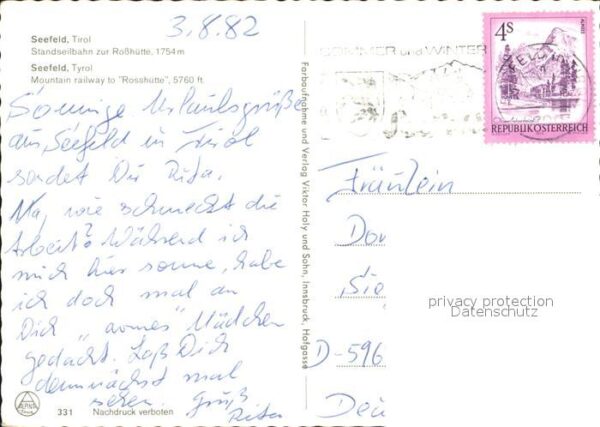 3.8.82
Seefeld, Tirol
Standseilbahn zur Roßhütte, 1754 m
Seefeld, Tyrol
Mountain railway to "Rosshütte", 5760 ft.
Sonnige Urlaubsgrüße
aus Seefeld in Tirol
sendet Dir Rita.
Na, wie schmeckt die
Arbeit? Während ich
mich hier sonne, habe
ich doch mal an
Dich "armes" Mädchen
gedacht. Laß Dich
demnächst mal
sehen. Gruß
Rita
331 Nachdruck verboten
Farbaufnahme und Verlag Viktor Holy und Sohn, Innsbruck, Hofgasse
SOMMER und WINTER
4 S
REPUBLIK ÖSTERREICH
Fräulein
Dor
Sie
privacy protection
Datenschutz
D-596
Deu